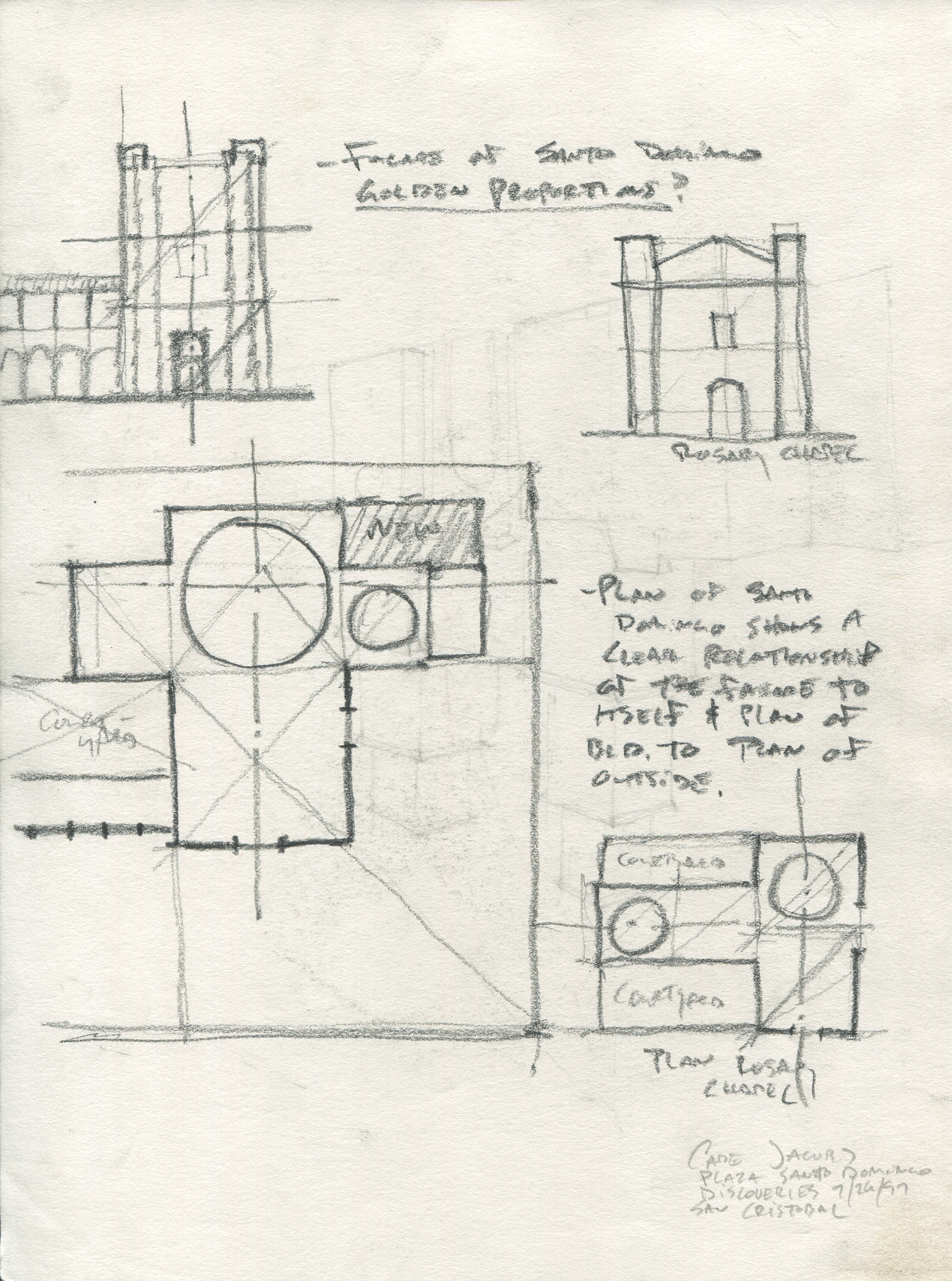 - FACADE OF SANTO DOMINGO
GOLDEN PROPORTIONS?
ROSARY CHAPEL
NEW
- PLAN OF SANTO
DOMINGO SHOWS A
CLEAR RELATIONSHIP
OF THE FACADE TO
ITSELF & PLAN OF
BLD. TO PLAN OF
OUTSIDE.
COURTYARD
COURTYARD
COURTYARD
PLAN ROSARY
CHAPEL
JACOBS
PLAZA SANTO DOMINGO
DISCOVERIES
SAN CRISTOBAL